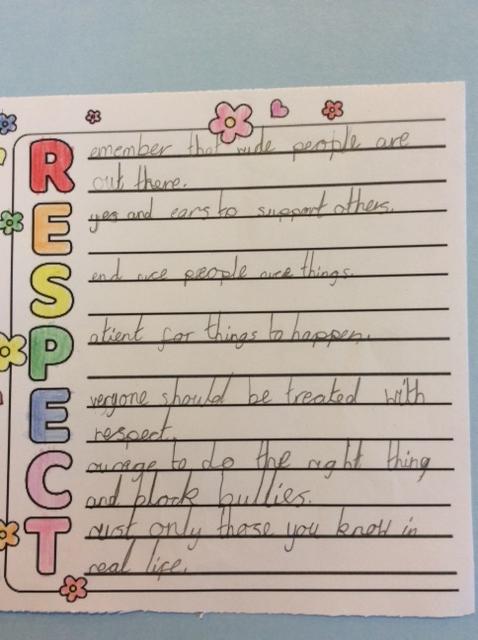 Remember that rude people are
out there.
Eyes and ears to support others.
Send nice people nice things.
Patient for things to happen.
Everyone should be treated with
respect.
Courage to do the right thing
and block bullies.
Trust only those you know in
real life.